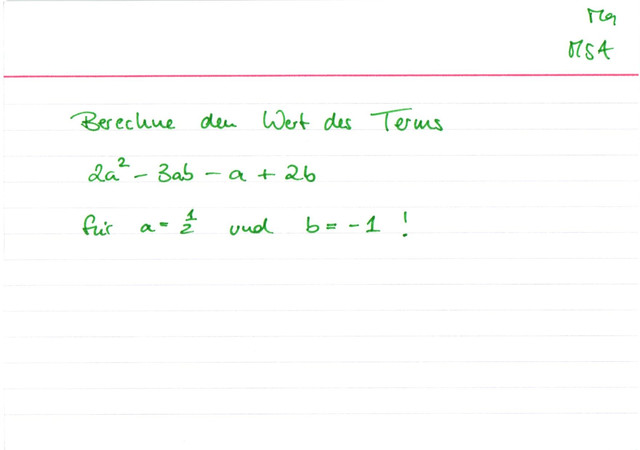 Ma
MSA
Berechne den Wert des Terms
2a² - 3ab - a + 2b
für a = 1/2 und b = -1 !